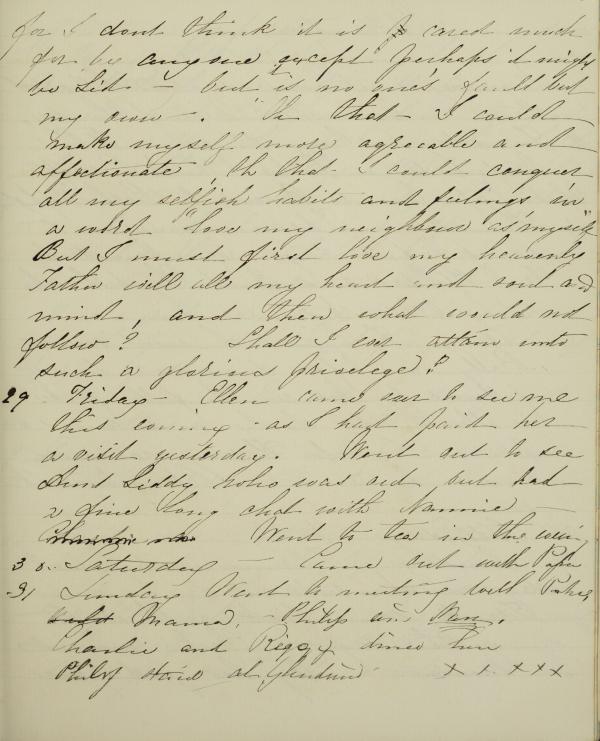 for I dont think it is cared much
for by anyone except perhaps it might
be Lid - but is no one's fault but
my own. Oh that I could
make myself more agreeable and
affectionate, Oh that I could conquer
all my selfish habits and feelings in
a word "love my neighbour as myself"
But I must first love my heavenly
Father with all my heart and soul and
mind, and then what would not
follow? Shall I ever attain unto
such a glorious privelege?
29 Friday - Ellen came over to see me
this evening as I had paid her
a visit yesterday. Went out to see
Aunt Liddy who was out, but had
a fine long chat with Nannie
Went to tea in the
30. Saturday - Came out with Papa
31 Sunday Went to meeting with
Mama, - Philip
Charlie and Reggy dined here
Philip at
x x x x x